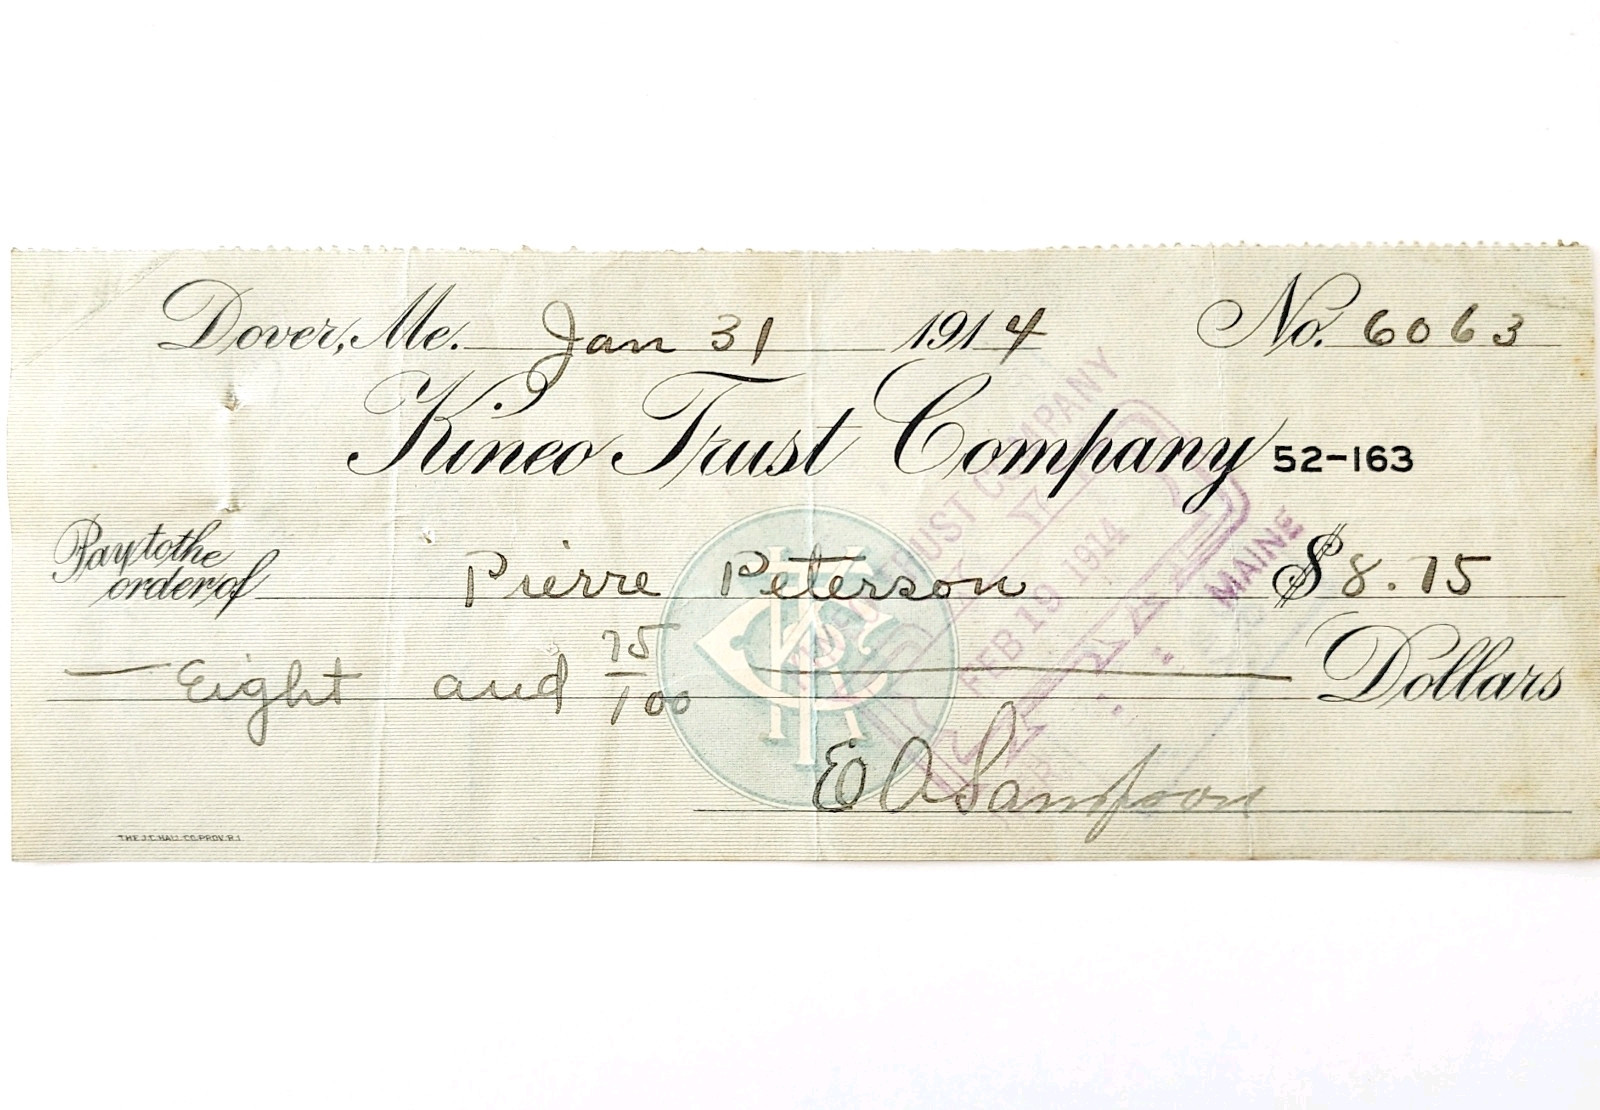 Dover, Me. Jan 31 1914 No. 6063
Kineo Trust Company 52-163
Pay to the
order of Pierre Peterson $8.75
Eight and 75/100 Dollars
E A Sampson
THE J.C. HALL CO. PROV. R.I.
TRUST COMPANY
FEB 19 1914
MAINE